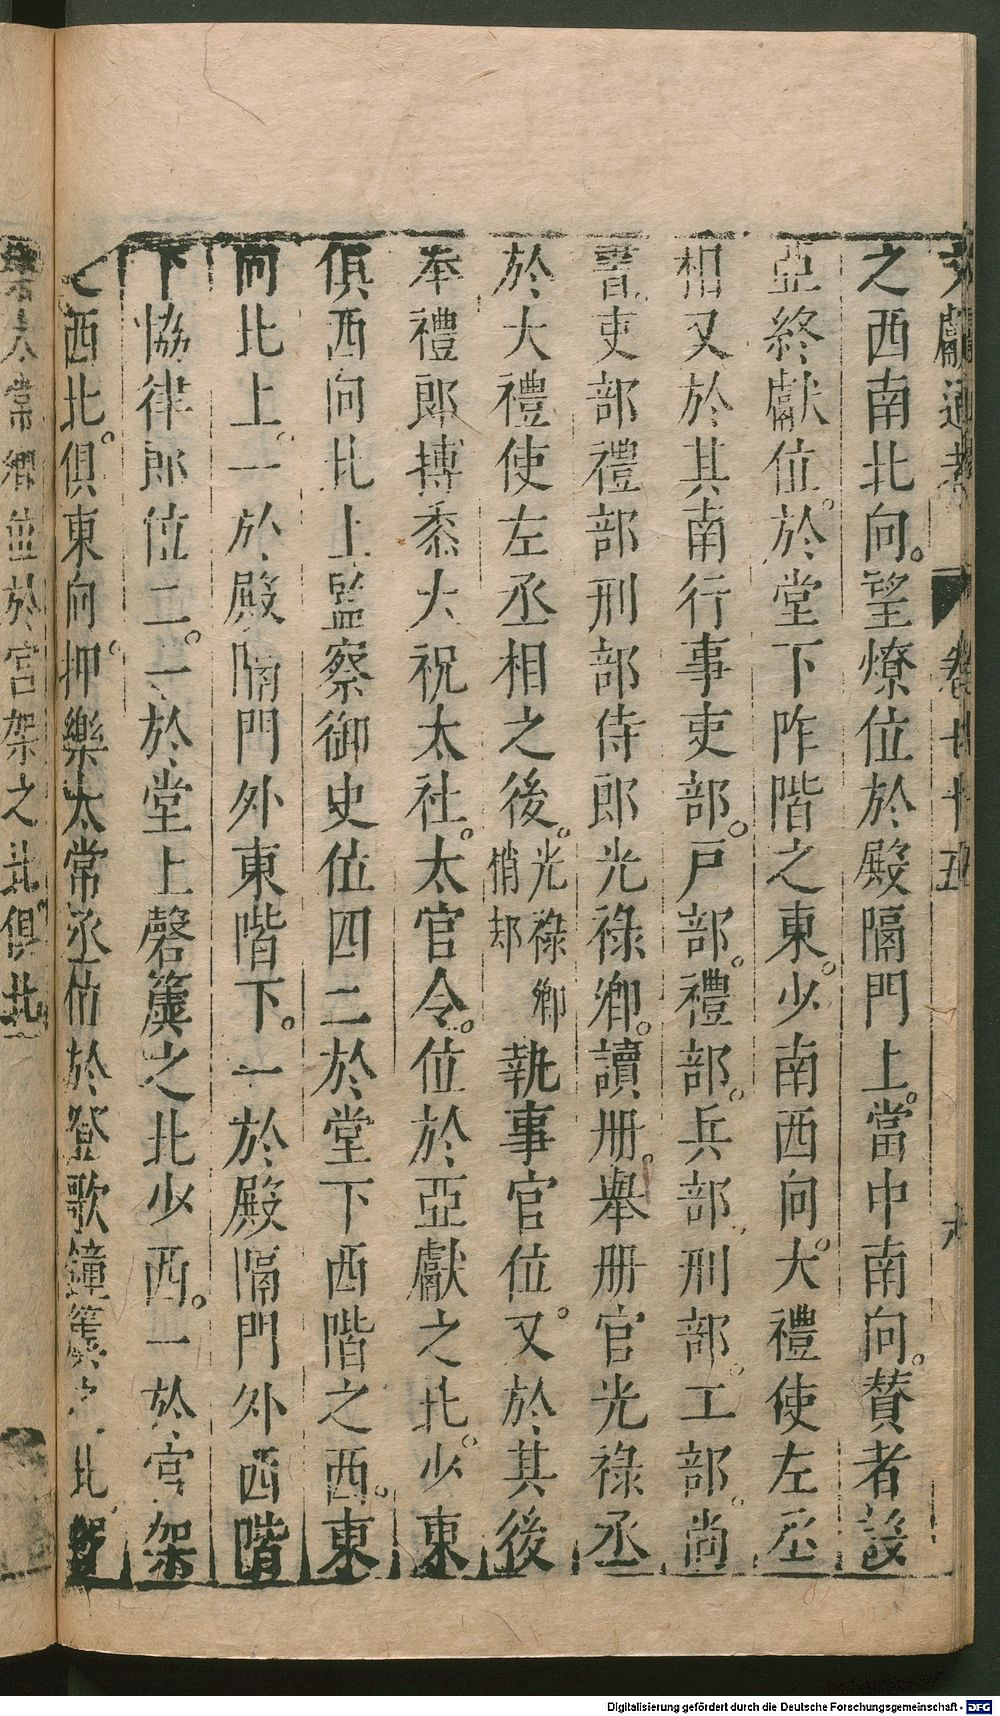 文獻通考 卷七十五
之西南北向。望燎位於殿隔門上。當中南向。賛者設
亞終獻位。於堂下阼階之東。少南西向。大禮使左丞
相又於其南行事吏部。戸部。禮部。兵部刑部。工部。尚
書吏部禮部刑部侍郎光祿卿。讀册。舉册官光祿丞
於大禮使左丞相之後。光祿卿稍却執事官位。又於其後
奉禮郎摶黍大祝太社。太官令。位於亞獻之北。少東
俱西向北上監察御史位四二於堂下西階之西。東
向北上。一於殿隔門外東階下。一於殿隔門外西階
下協律郎位二。一於堂上磬簴之北少西。一於宮架
之西北。俱東向。押樂太常丞位於登歌鐘簴之北。
太常卿位於宮架之北俱北
Digitalisierung gefördert durch die Deutsche Forschungsgemeinschaft - DFG